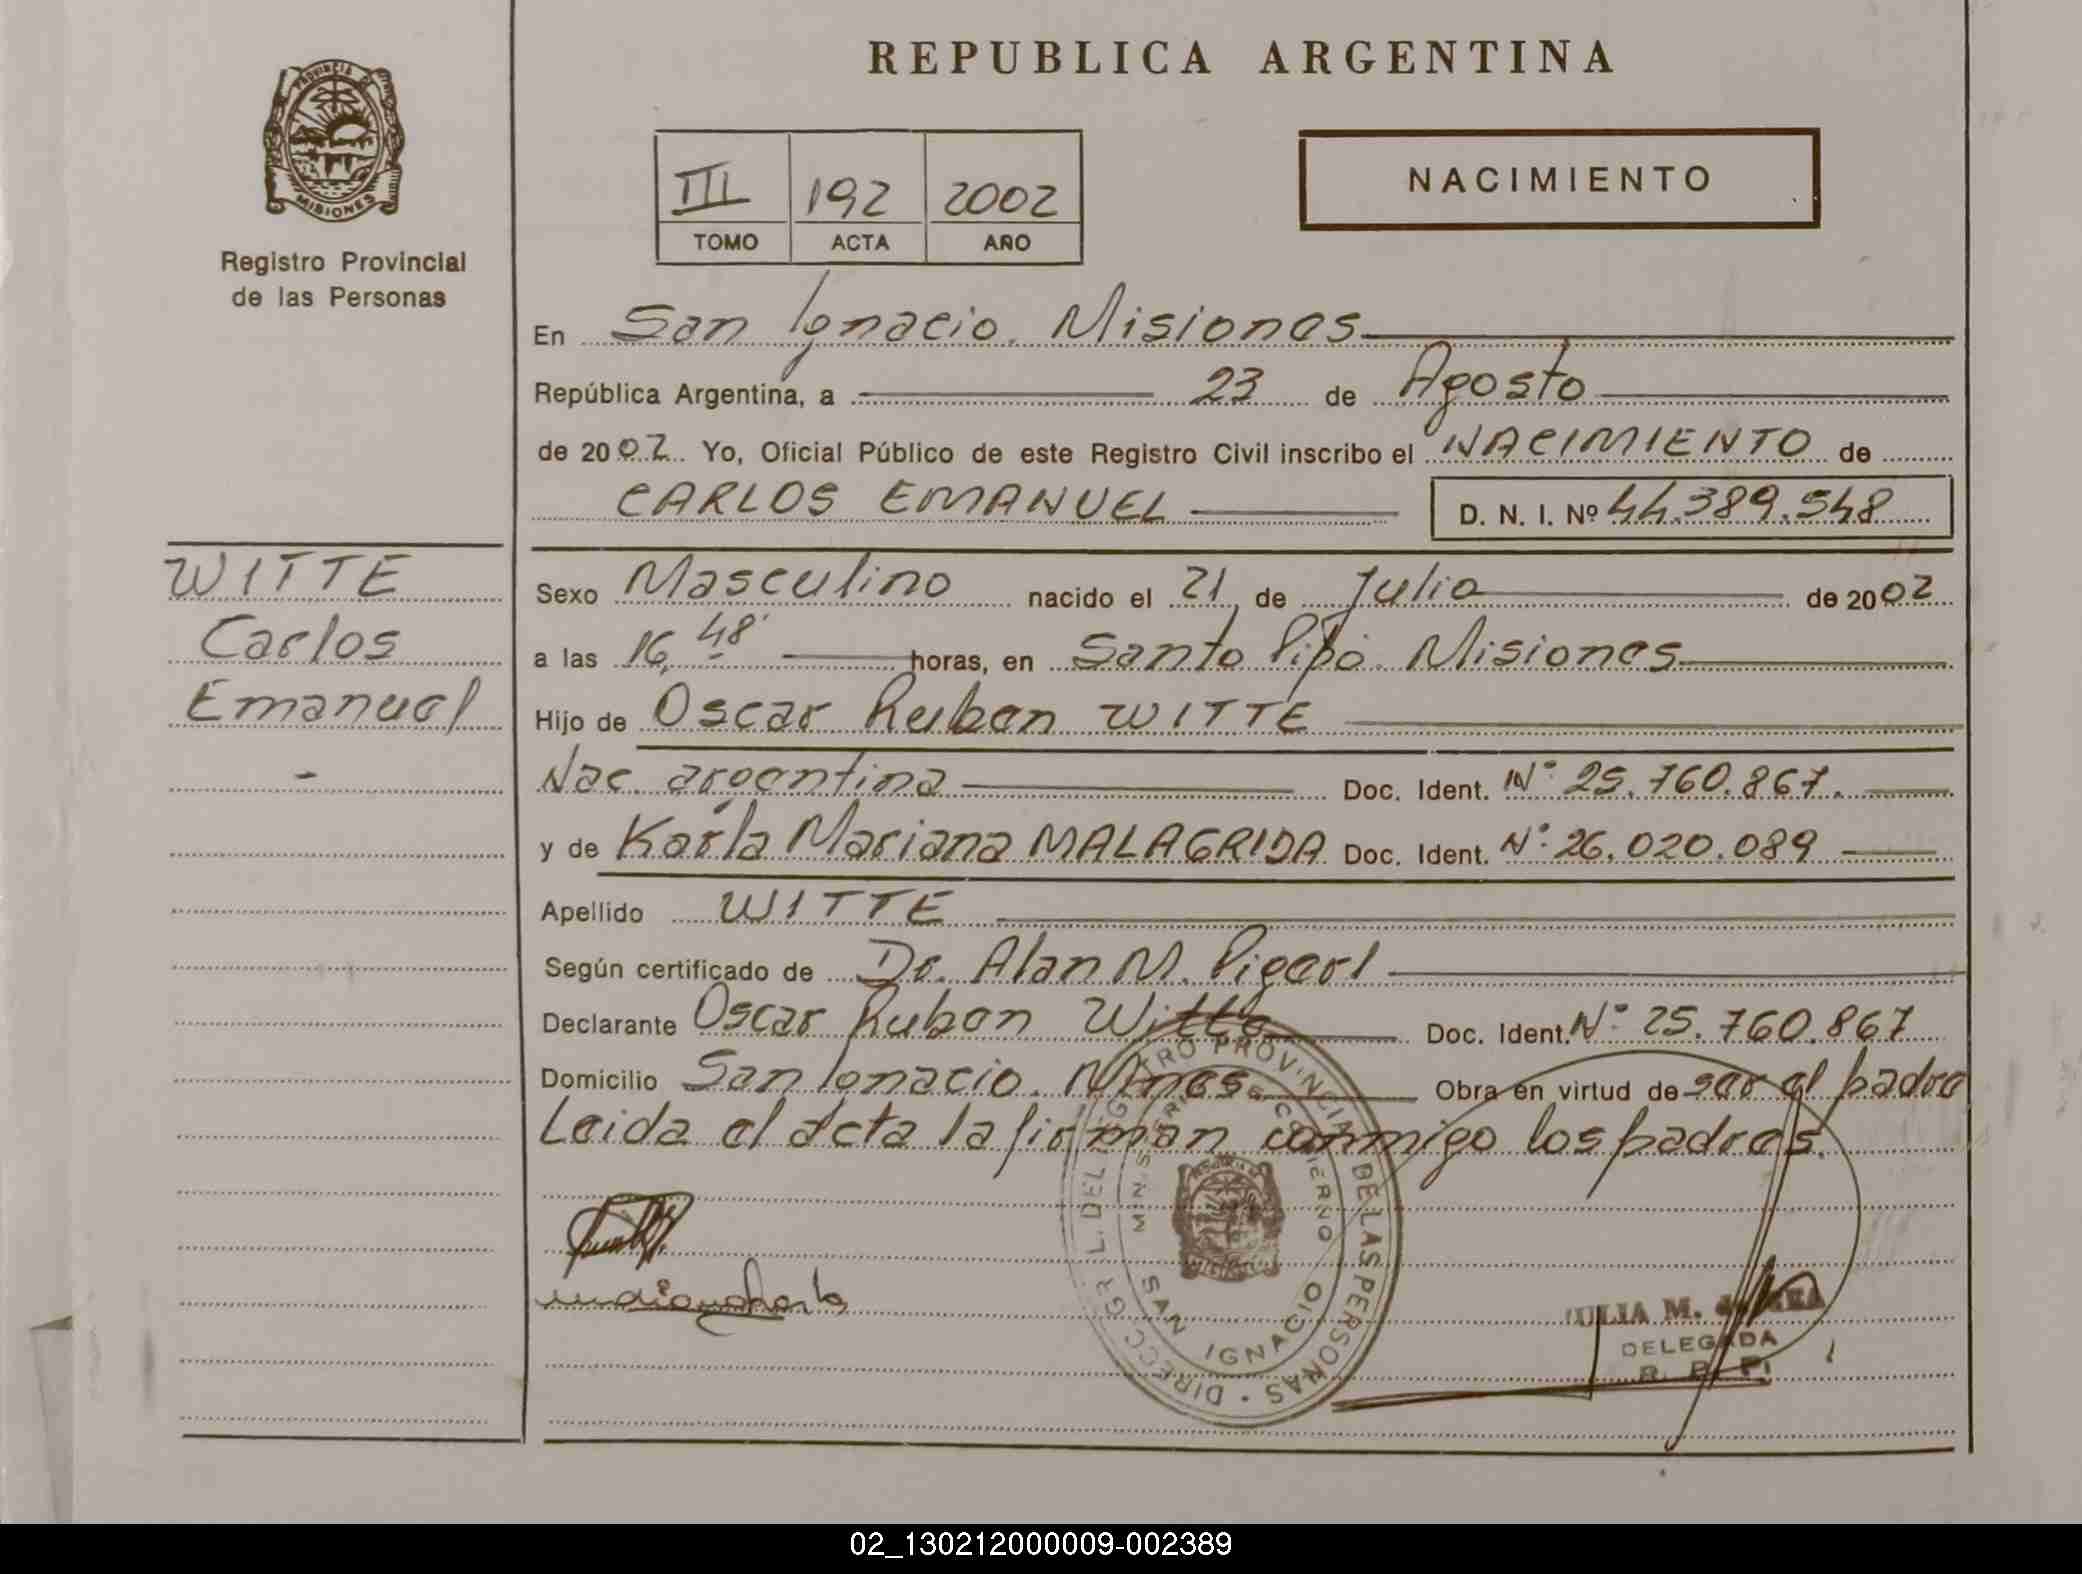 REPUBLICA ARGENTINA
PROVINCIA DE
MISIONES
Registro Provincial
de las Personas
III 192 2002
TOMO ACTA AÑO
NACIMIENTO
En San Ignacio. Misiones
República Argentina, a 23 de Agosto
de 2002 Yo, Oficial Público de este Registro Civil inscribo el NACIMIENTO de
CARLOS EMANUEL D. N. I. Nº 44.389.548
WITTE
Carlos
Emanuel
Sexo Masculino nacido el 21 de Julio de 2002
a las 16,48' horas, en Santo Pipó. Misiones
Hijo de Oscar Ruben WITTE
Nac. argentina Doc. Ident. Nº 25.760.867.
y de Karla Mariana MALAGRIDA Doc. Ident. Nº 26.020.089
Apellido WITTE
Según certificado de Dr. Alan M.
Declarante Oscar Ruben Witte Doc. Ident. Nº 25.760.867
Domicilio San Ignacio. Mnes Obra en virtud de ser el padre
Leida el acta la firman conmigo los padres.
DIRECC. GRL. DEL REGISTRO PROVINCIAL DE LAS PERSONAS
SAN IGNACIO
JULIA M. de
DELEGADA
R. P. P.
02_130212000009-002389